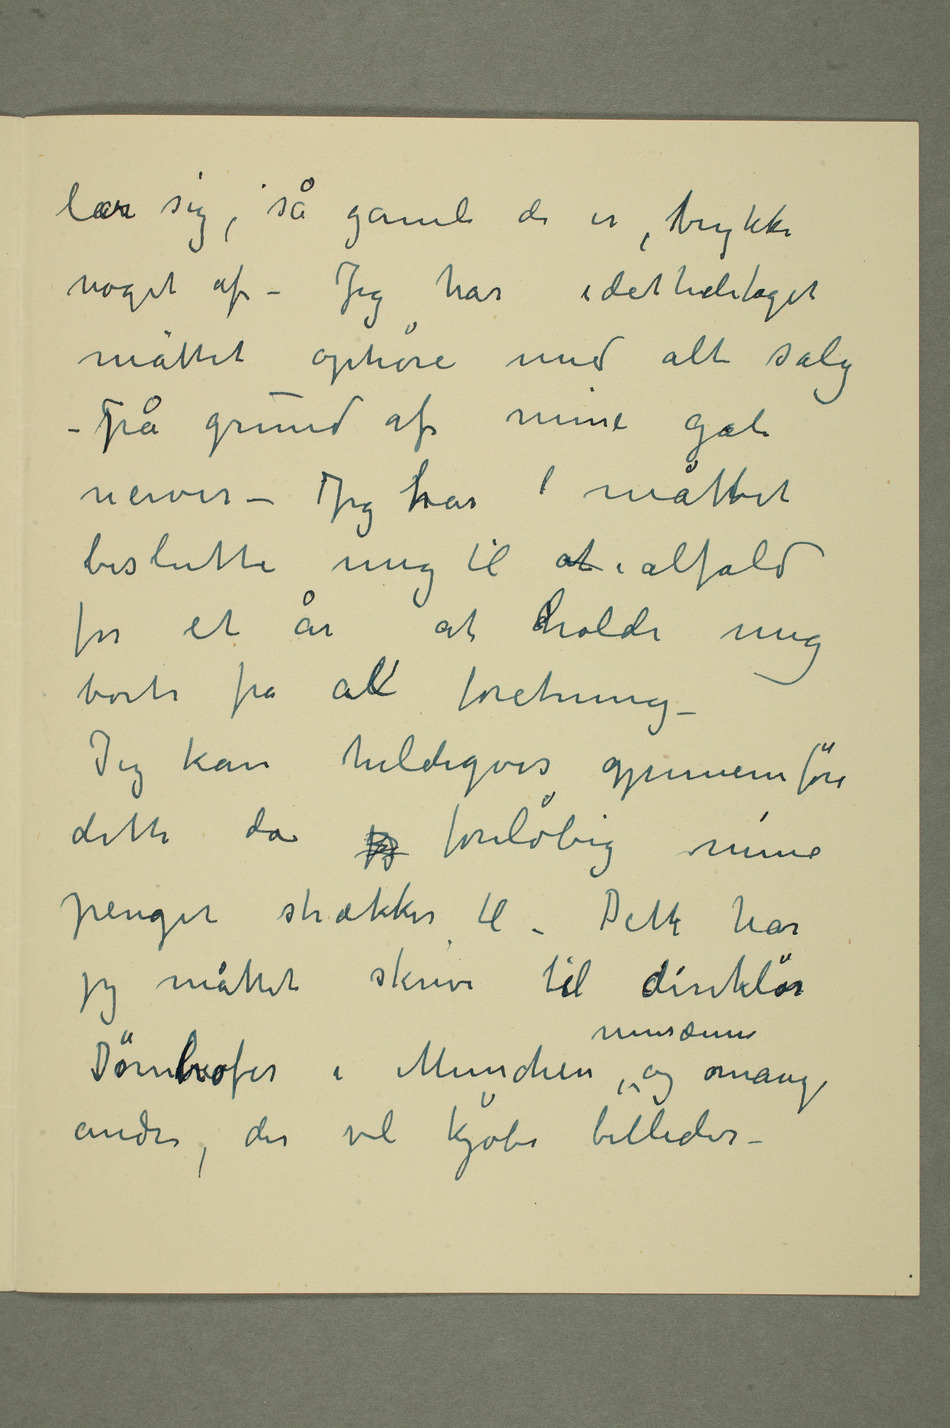 lar sig, så gamle de er, trykke
noget af – Jeg har idetheletaget
måttet ophöre med alt salg
– På grund af mine gale
nerver – Jeg har måttet
beslutte mig til at ialfald
for et år at holde mig
borte fra al foretning –
Jeg kan heldigvis gjennemföre
dette da foreløbig mine
penger strækker til – Dette har
jeg måttet skrive til direktör
Dörnhofer i Munchen musæum, og mange
andre, der vil kjøbe billeder –